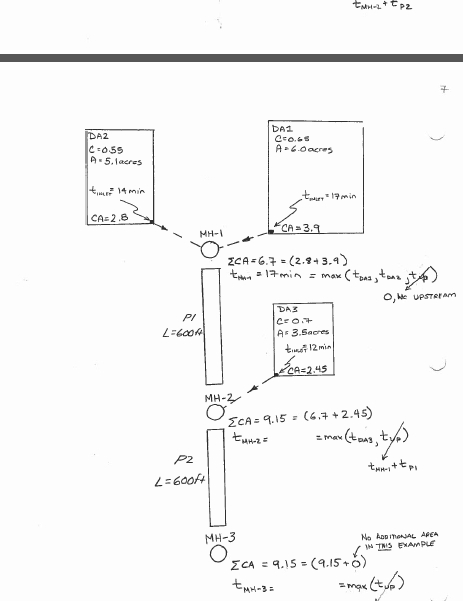 tMH-2 + tP2
7
DA2
C=0.55
A=5.1acres
tINLET=14 min
CA=2.8
DA1
C=0.65
A=6.0acres
tINLET=17min
CA=3.9
MH-1
ΣCA=6.7=(2.8+3.9)
tMH-1=17min = max(tDA1, tDA2, tUP)
0, NO UPSTREAM
P1
L=600ft
DA3
C=0.7
A=3.5acres
tINLET=12min
CA=2.45
MH-2
ΣCA=9.15=(6.7+2.45)
tMH-2= =max(tDA3, tUP)
tMH-1+tP1
P2
L=600ft
MH-3
NO ADDITIONAL AREA
IN THIS EXAMPLE
ΣCA = 9.15 = (9.15+0)
tMH-3= =max(tUP)